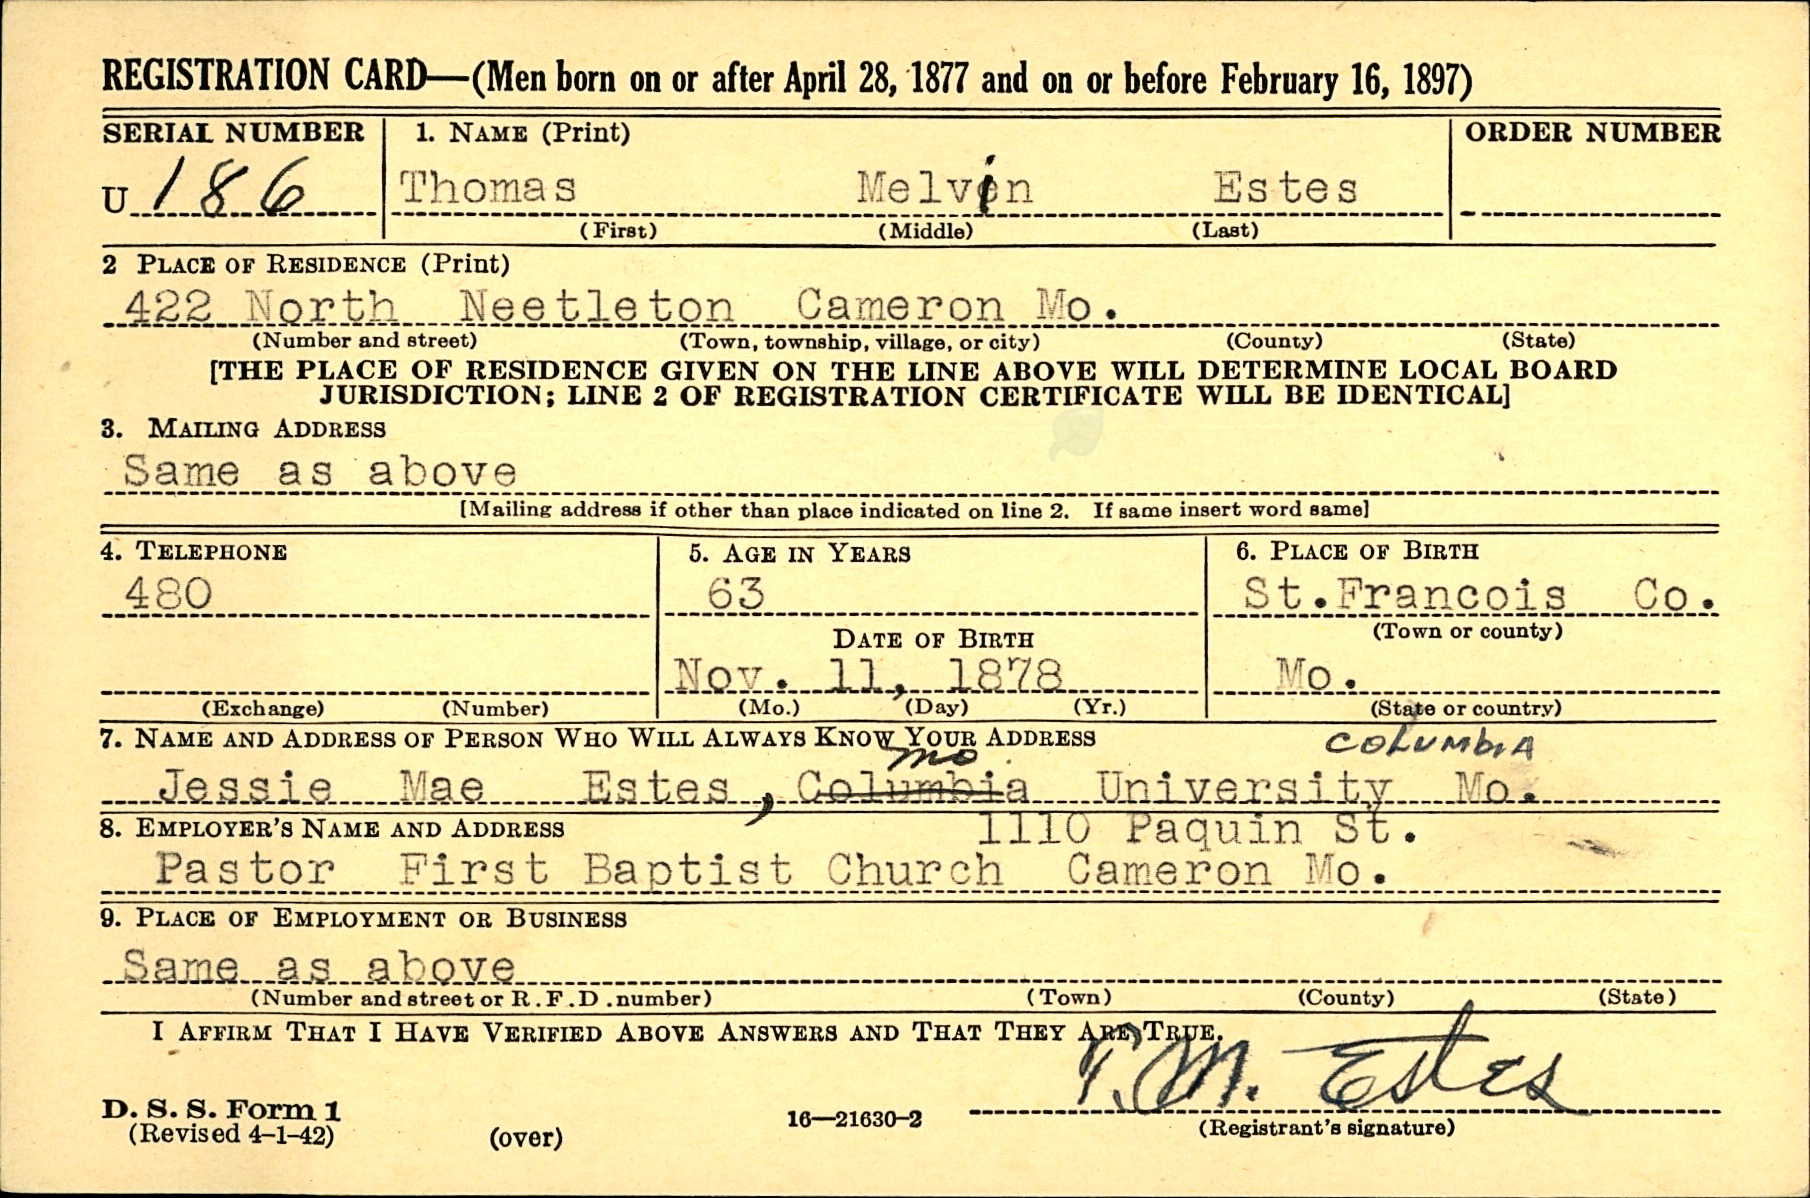 REGISTRATION CARD—(Men born on or after April 28, 1877 and on or before February 16, 1897)
SERIAL NUMBER 1. NAME (Print) ORDER NUMBER
U 186 Thomas Melvin Estes
(First) (Middle) (Last)
2 PLACE OF RESIDENCE (Print)
422 North Neetleton Cameron Mo.
(Number and street) (Town, township, village, or city) (County) (State)
[THE PLACE OF RESIDENCE GIVEN ON THE LINE ABOVE WILL DETERMINE LOCAL BOARD
JURISDICTION; LINE 2 OF REGISTRATION CERTIFICATE WILL BE IDENTICAL]
3. MAILING ADDRESS
Same as above
[Mailing address if other than place indicated on line 2. If same insert word same]
4. TELEPHONE 5. AGE IN YEARS 6. PLACE OF BIRTH
480 63 St.Francois Co.
(Town or county)
DATE OF BIRTH
Nov. 11, 1878 Mo.
(Exchange) (Number) (Mo.) (Day) (Yr.) (State or country)
7. NAME AND ADDRESS OF PERSON WHO WILL ALWAYS KNOW YOUR ADDRESS COLUMBIA
mo
Jessie Mae Estes, Columbia University Mo.
8. EMPLOYER'S NAME AND ADDRESS 1110 Paquin St.
Pastor First Baptist Church Cameron Mo.
9. PLACE OF EMPLOYMENT OR BUSINESS
Same as above
(Number and street or R.F.D. number) (Town) (County) (State)
I AFFIRM THAT I HAVE VERIFIED ABOVE ANSWERS AND THAT THEY ARE TRUE.
T. M. Estes
D. S. S. Form 1
(Revised 4-1-42) (over) 16—21630-2 (Registrant's signature)